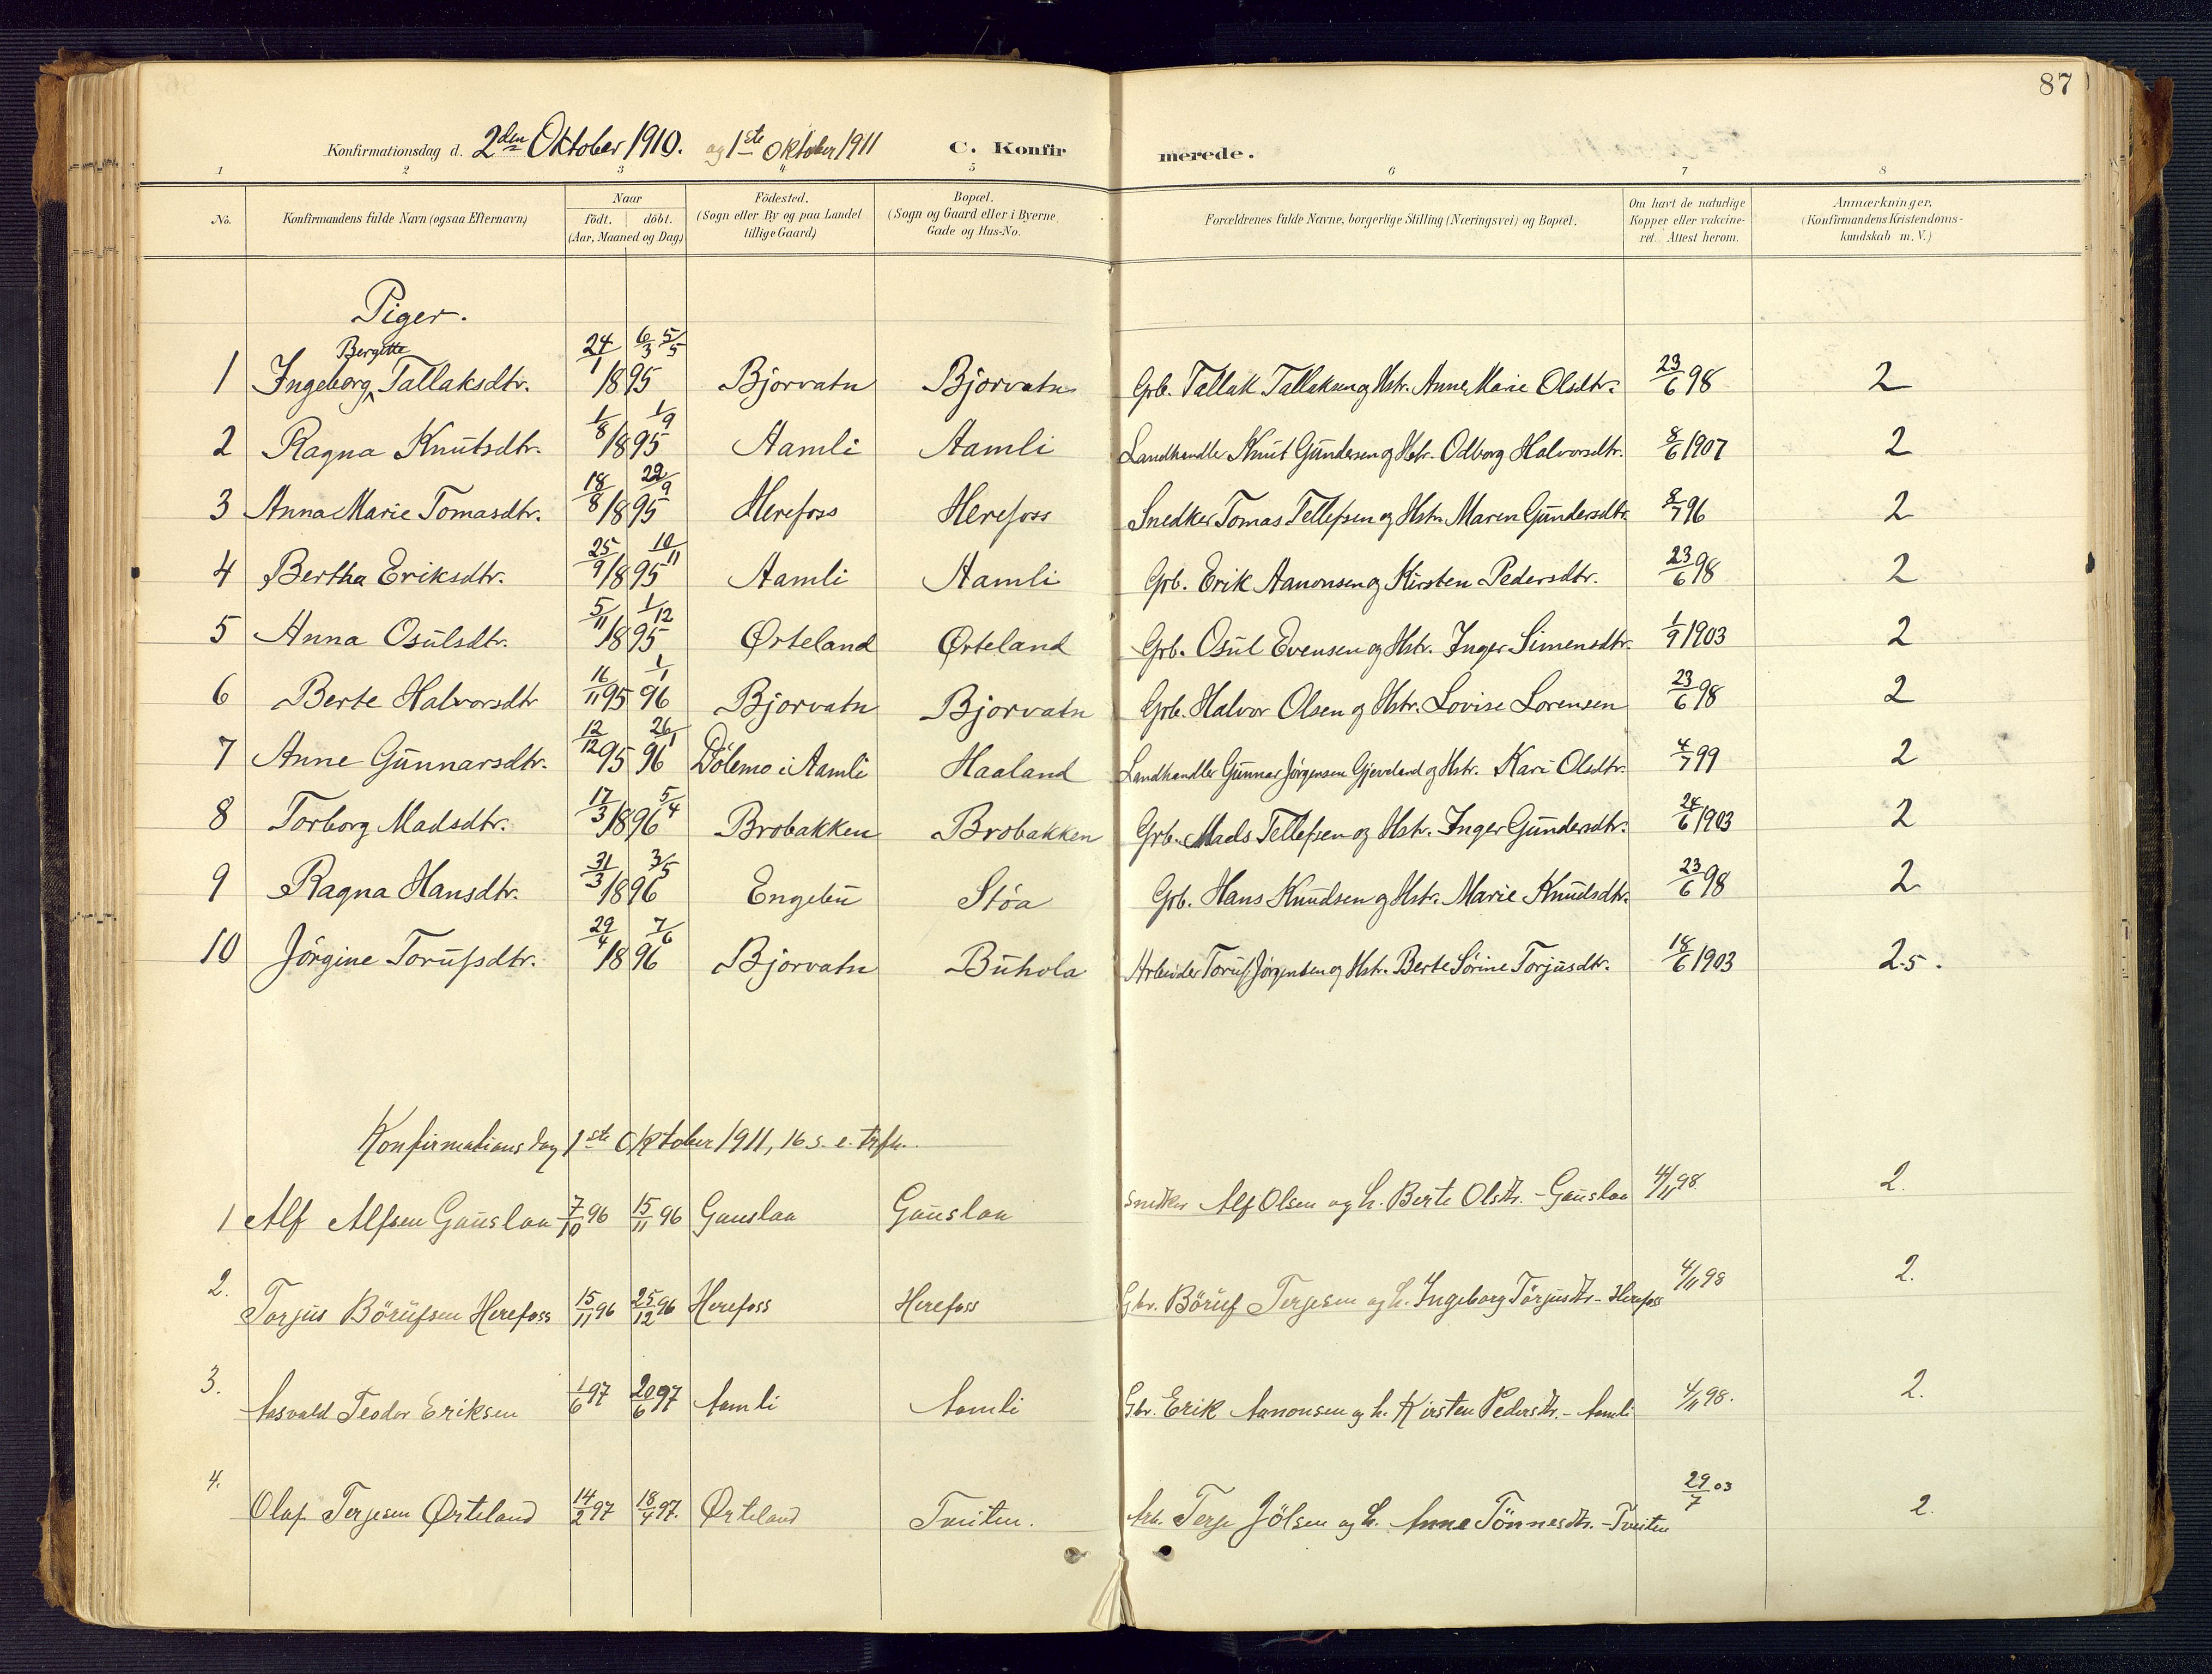 87
Konfirmationsdag d. 2den Oktober 1910. og 1ste Oktober 1911 C. Konfirmerede.
1 2 3 4 5 6 7 8
No. Konfirmandens fulde Navn (ogsaa Efternavn) Naar födt. döbt. (Aar, Maaned og Dag) Födested. (Sogn eller By og paa Landet tillige Gaard) Bopæl. (Sogn og Gaard eller i Byerne Gade og Hus-No. Forældrenes fulde Navne, borgerlige Stilling (Næringsvei) og Bopæl. Om havt de naturlige Kopper eller vakcineret. Attest herom. Anmærkninger. (Konfirmandens Kristendomskundskab m. V.)
Piger.
1 Ingeborg Bergitte Tallaksdtr. 24/1 1895 6/3 5/5 Bjorvatn Bjorvatn Grb. Tallak Tallaksen og Hstr. Anne Marie Olsdtr. 23/6 98 2
2 Ragna Knutsdtr. 1/8 1895 1/9 Aamli Aamli Landhandler Knut Gundersen og Hstr. Odborg Halvorsdtr. 8/6 1907 2
3 Anna Marie Tomasdtr. 18/8 1895 22/9 Herefoss Herefoss Snedker Tomas Tellefsen og Hstr. Maren Gundersdtr. 8/7 96 2
4 Bertha Eriksdtr. 25/9 1895 10/11 Aamli Aamli Grb. Erik Aanonsen og Kirsten Pedersdtr. 23/6 98 2
5 Anna Osulsdtr. 5/11 1895 1/12 Ørteland Ørteland Grb. Osul Evensen og Hstr. Inger Simensdtr. 1/9 1903 2
6 Berte Halvorsdtr 16/11 95 1/1 96 Bjorvatn Bjorvatn Grb. Halvor Olsen og Hstr. Lovise Lorensen 23/6 98 2
7 Anne Gunnarsdtr. 12/12 95 26/1 96 Dölemo i Aamli Haaland Landhandler Gunnar Jörgensen Gjerveland og Hstr. Kari Olsdtr. 4/7 99 2
8 Torborg Madsdtr. 17/3 1896 5/4 Brobakken Brobakken Grb. Mads Tellefsen og Hstr. Inger Gundersdtr. 24/6 1903 2
9 Ragna Hansdtr. 31/3 1896 3/5 Engebu Stöa Grb. Hans Knudsen og Hstr. Marie Knudsdtr. 23/6 98 2
10 Jörgine Torufsdtr. 29/4 1896 7/6 Bjorvatn Buhola Arbeider Toruf Jörgensen og Hstr. Berte Sörine Torjusdtr. 18/6 1903 2.5.
Konfirmationsdag 1ste Oktober 1911, 16 s. e. trfh.
1 Alf Alfsen Gauslaa 7/10 96 15/11 96 Gauslaa Gauslaa Snedker Alf Olsen og h. Berte Olsdtr. - Gauslaa 4/11 98 2.
2. Torjus Börufsen Herefoss 15/11 96 25/12 96 Herefoss Herefoss Gbr. Böruf Terjesen og h. Ingeborg Torjusdtr. - Herefoss 4/11 98 2.
3. Aasvald Teodor Eriksen 1/6 97 20/6 97 Aamli Aamli Gbr. Erik Aanonsen og h. Kirsten Pedersdtr. - Aamli 4/11 98. 2.
4. Olaf Terjesen Ørteland 14/2 97 18/4 97. Ørteland Tveiten. Arb. Terje Jölsen og h. Anne Tönnesdtr. - Tveiten 29/7 03 2.